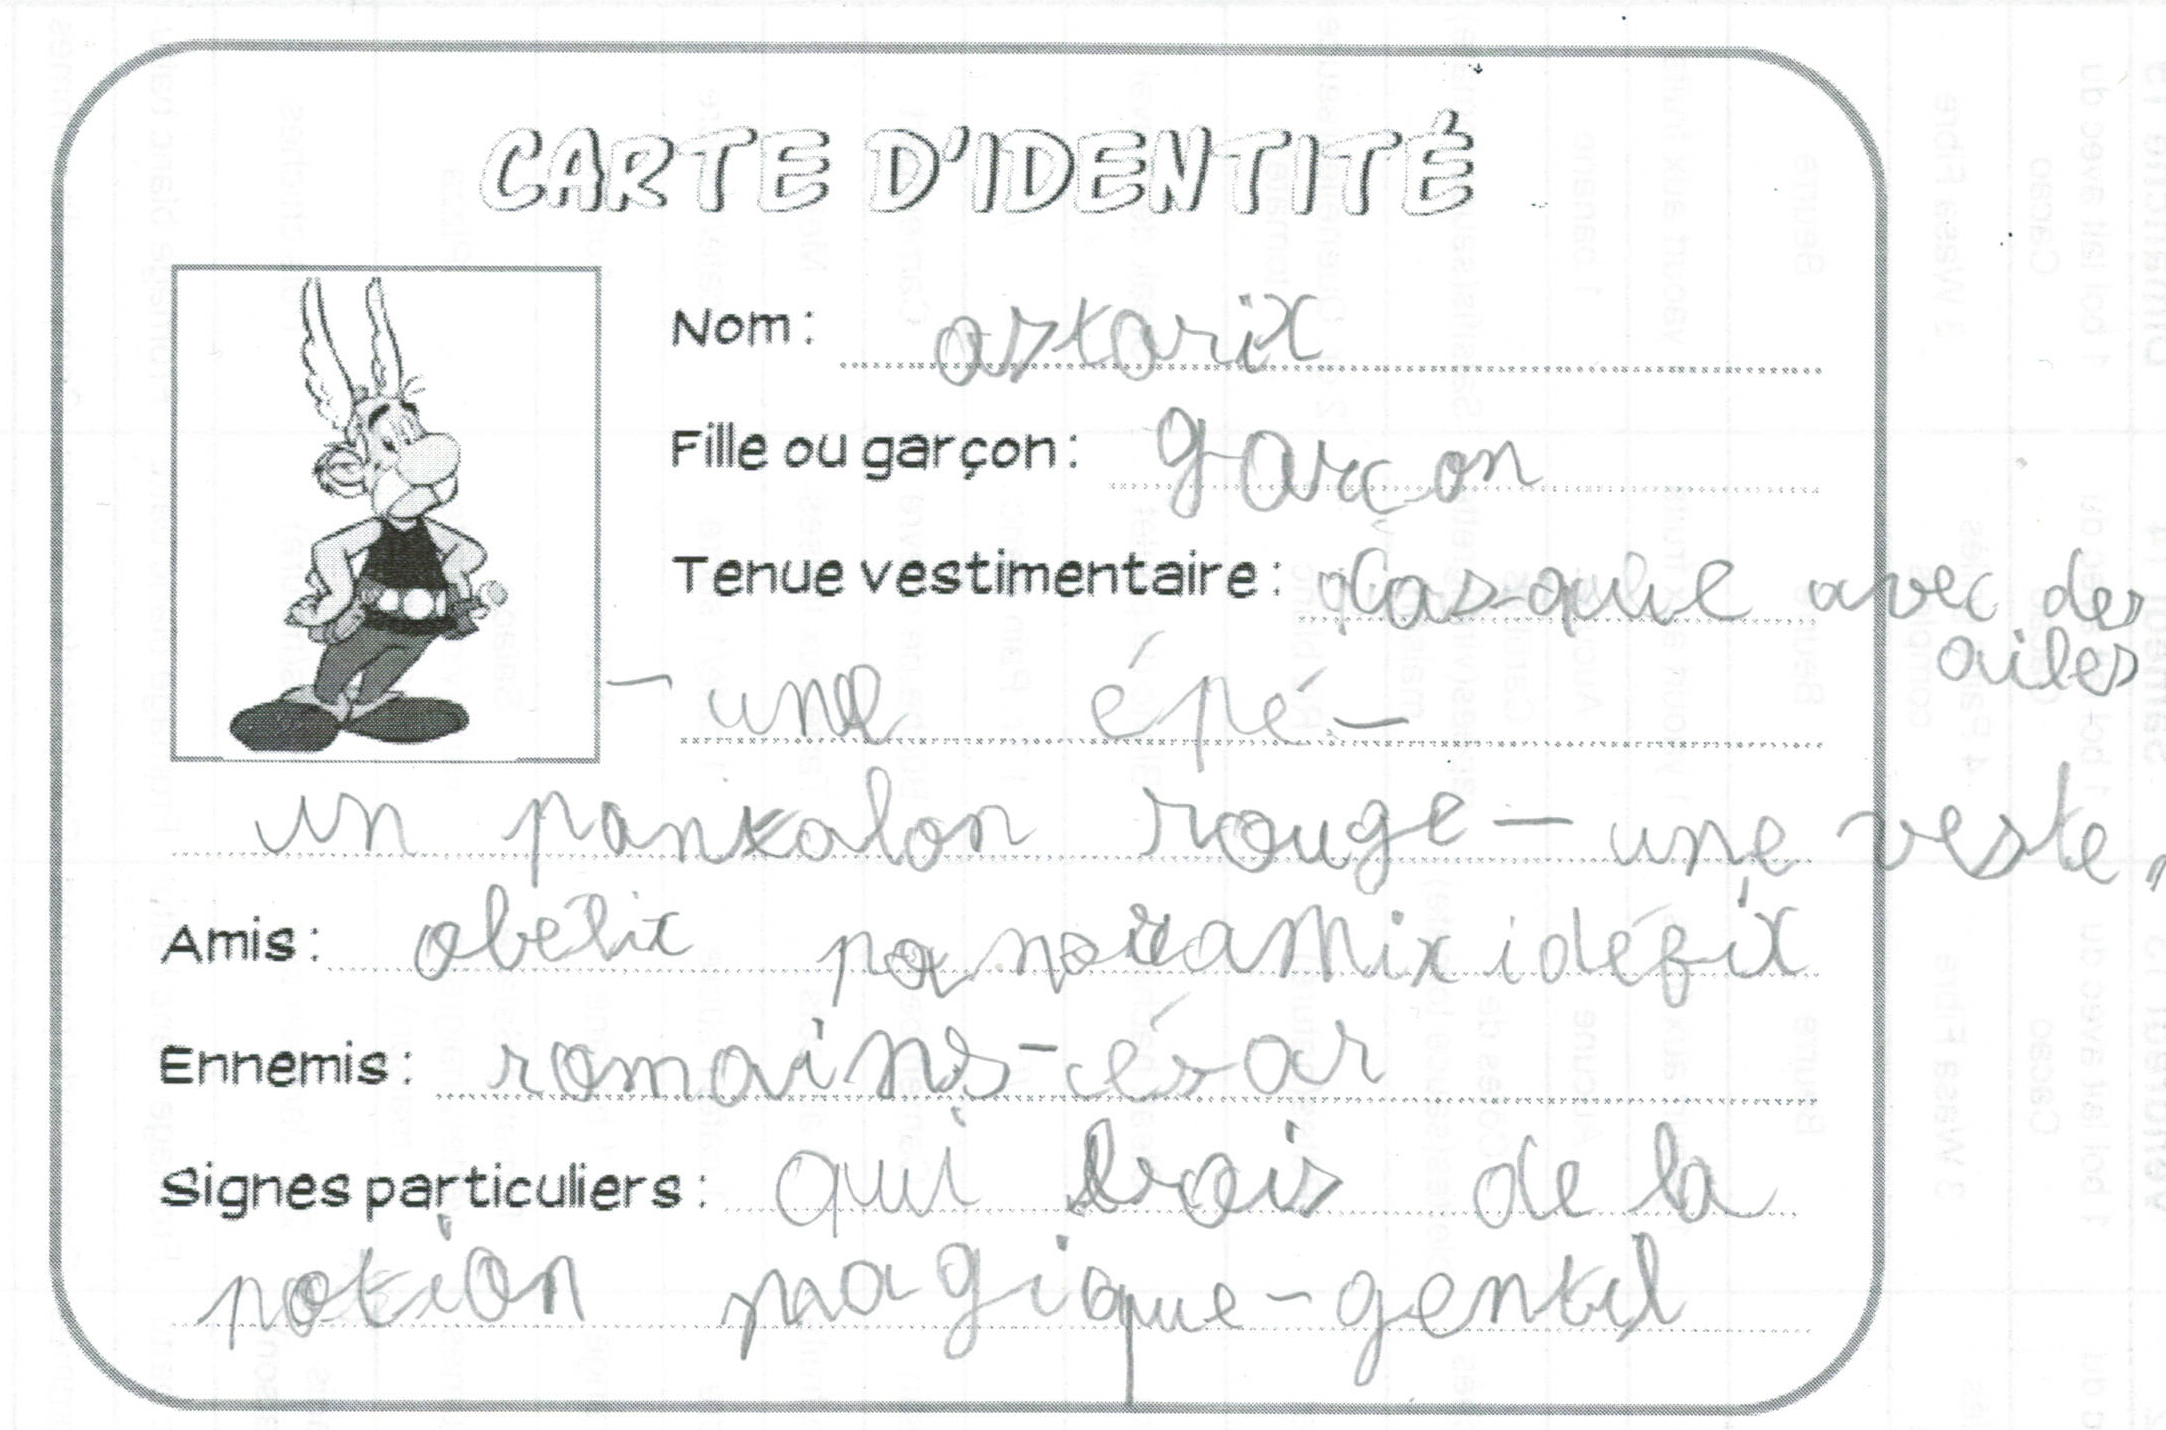 CARTE D'IDENTITÉ
Nom : astarix
Fille ou garçon : garcon
Tenue vestimentaire : casque avec des
ailes
- une épé -
un pantalon rouge - une veste
Amis : obélix panoramix idéfix
Ennemis : romains - césar
Signes particuliers : qui bois de la
potion magique - gentil